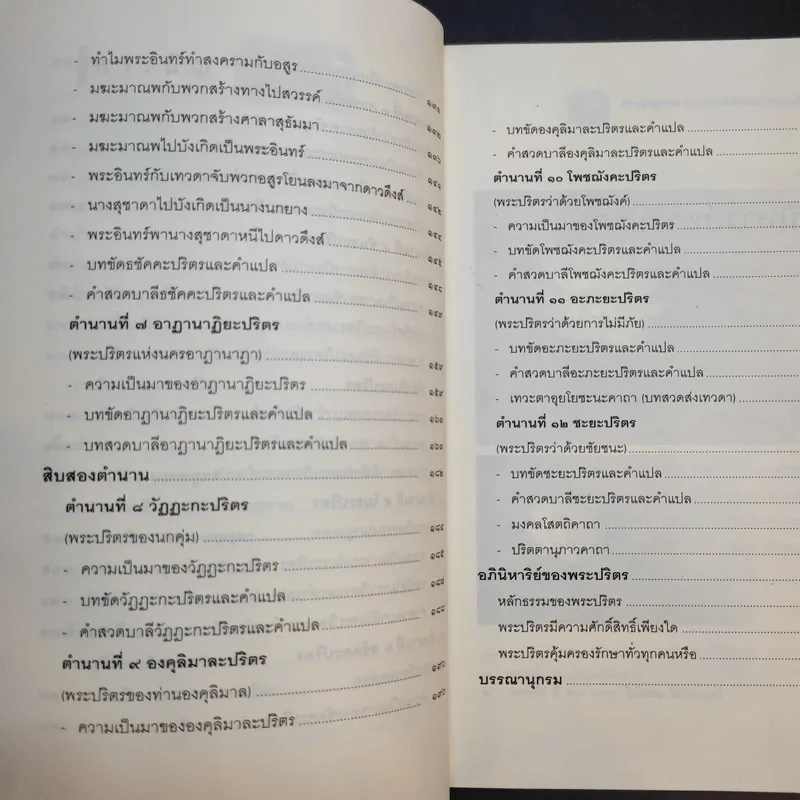 - ทำไมพระอินทร์ทำสงครามกับอสูร
- มฆะมาณพกับพวกสร้างทางไปสวรรค์ ๑๓๑
- มฆะมาณพกับพวกสร้างศาลาสุธัมมา ๑๓๒
- มฆะมาณพไปบังเกิดเป็นพระอินทร์ ๑๓๖
- พระอินทร์กับเทวดาจับพวกอสูรโยนลงมาจากดาวดึงส์ ๑๔๑
- นางสุชาดาไปบังเกิดเป็นนางนกยาง ๑๔๒
- พระอินทร์พานางสุชาดาหนีไปดาวดึงส์ ๑๔๔
- บทขัดธชัคคะปริตรและคำแปล ๑๔๕
- คำสวดบาลีธชัคคะปริตรและคำแปล ๑๔๘
ตำนานที่ ๗ อาฏานาฏิยะปริตร ๑๔๙
(พระปริตรแห่งนครอาฏานาฏา) ๑๕๙
- ความเป็นมาของอาฏานาฏิยะปริตร ๑๕๙
- บทขัดอาฏานาฏิยะปริตรและคำแปล ๑๖๐
- บทสวดบาลีอาฏานาฏิยะปริตรและคำแปล ๑๖๐
สิบสองตำนาน ๑๘๒
ตำนานที่ ๘ วัฏฏะกะปริตร
(พระปริตรของนกคุ่ม) ๑๘๔
- ความเป็นมาของวัฏฏะกะปริตร ๑๘๕
- บทขัดวัฏฏะกะปริตรและคำแปล ๑๘๗
- คำสวดบาลีวัฏฏะกะปริตรและคำแปล ๑๘๘
ตำนานที่ ๙ องคุลิมาละปริตร
(พระปริตรของท่านองคุลิมาล) ๑๙๐
- ความเป็นมาขององคุลิมาละปริตร ๑๙๐
- บทขัดองคุลิมาละปริตรและคำแปล
- คำสวดบาลีองคุลิมาละปริตรและคำแปล
ตำนานที่ ๑๐ โพชฌังคะปริตร
(พระปริตรว่าด้วยโพชฌงค์)
- ความเป็นมาของโพชฌังคะปริตร
- บทขัดโพชฌังคะปริตรและคำแปล
- คำสวดบาลีโพชฌังคะปริตรและคำแปล
ตำนานที่ ๑๑ อะภะยะปริตร
(พระปริตรว่าด้วยการไม่มีภัย)
- บทขัดอะภะยะปริตรและคำแปล
- คำสวดบาลีอะภะยะปริตรและคำแปล
- เทวะตาอุยโยชะนะคาถา (บทสวดส่งเทวดา)
ตำนานที่ ๑๒ ชะยะปริตร
(พระปริตรว่าด้วยชัยชนะ)
- บทขัดชะยะปริตรและคำแปล
- คำสวดบาลีชะยะปริตรและคำแปล
- มงคลโสตถิคาถา
- ปริตตานุภาวคาถา
อภินิหาริย์ของพระปริตร
หลักธรรมของพระปริตร
พระปริตรมีความศักดิ์สิทธิ์เพียงใด
พระปริตรคุ้มครองรักษาทั่วทุกคนหรือ
บรรณานุกรม